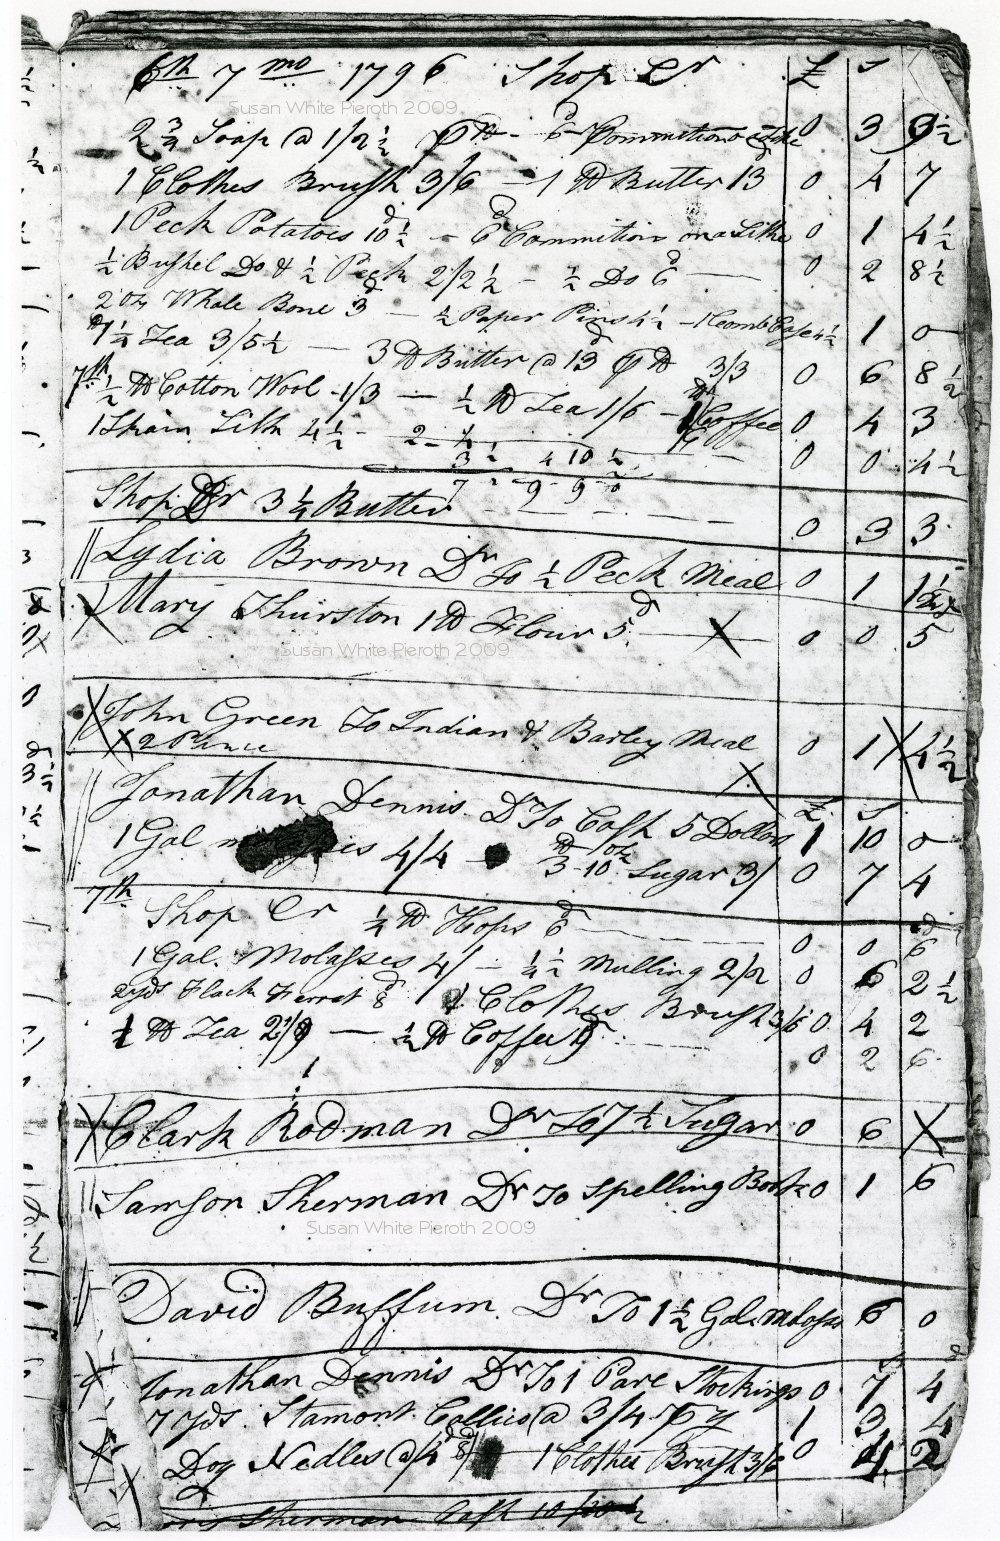 6th 7 mo 1796 Shop Cr £ s
Susan White Pieroth 2009
2 3/4 Soap @ 1/2 1/2 0 3 9 1/2
1 Clothes Brush 3/6 — 1 lb Butter 13d 0 4 7
1 Peck Potatoes 10d 1/2 — 6d Commition on a Sithe 0 1 4 1/2
1/2 Bushel Do & 1/2 Peck 2/2 1/2 — 1/2 Do 6d 0 2 8 1/2
2 oz Whale Bone 3d — 1/2 Paper Pins 4 1/2 — 1 Comb Case 4 1/2 1 0
1/4 Tea 3/5 1/2 — 3 lb Butter @ 13d lb 3/3 0 6 8 1/2
7th 1/2 lb Cotton Wool 1/3 — 1/2 lb Tea 1/6 — Coffee 0 4 3
1 Skain Silk 4 1/2 0 0 4 1/2
Shop Dr 3 1/4 Butter 0 3 3
Lydia Brown Dr To 1/2 Peck Meal 0 1 1 1/2
Mary Thurston 1 lb Flour 5d X 0 0 5
Susan White Pieroth 2009
X John Green To Indian & Barley Meal 0 1 X 4 1/2
X 2 Pence
Jonathan Dennis Dr To Cash 5 Dollors 1 10 0
1 Gal 4/4 3 lb 10 oz Sugar 3/ 0 7 4
7th Shop Cr 1/4 lb Hops 6d 0 0 6
1 Gal. Molasses 4/ — Mulling 2/2 0 6 2 1/2
2 yds Ferret 8d 1 Clothes Brush 3/6 0 4 2
lb Tea — 1/2 lb Coffee 0 2 6
X Clark Rodman Dr To 7 1/2 Sugar 0 6 X
Samson Sherman Dr To Spelling Book 0 1 6
Susan White Pieroth 2009
David Buffum Dr To 1 1/2 Gal. Molass 6 0
Jonathan Dennis Dr To 1 Pare Stockings 0 7 4
7 yds Stamont Callico @ 3/4 1 3 4
Doz Nedles @ 8d 1 Clothes Brush 3/6 0 4 2
Sherman Cash